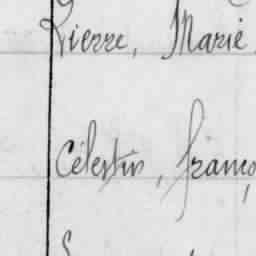 Pierre, Marie
Célestin, franço